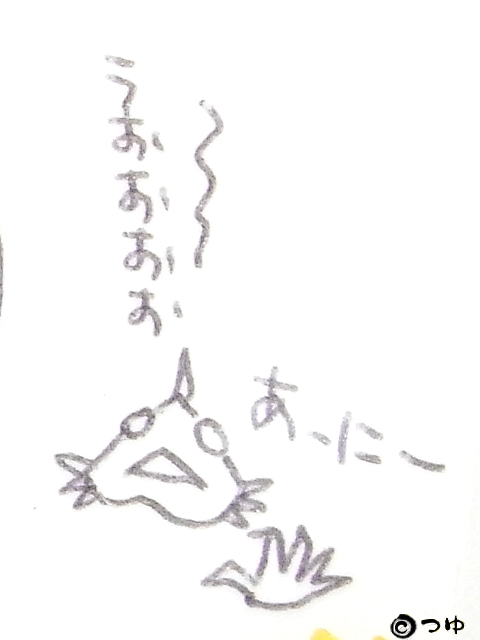 うおおおお
〜
あーにー
©つゆ